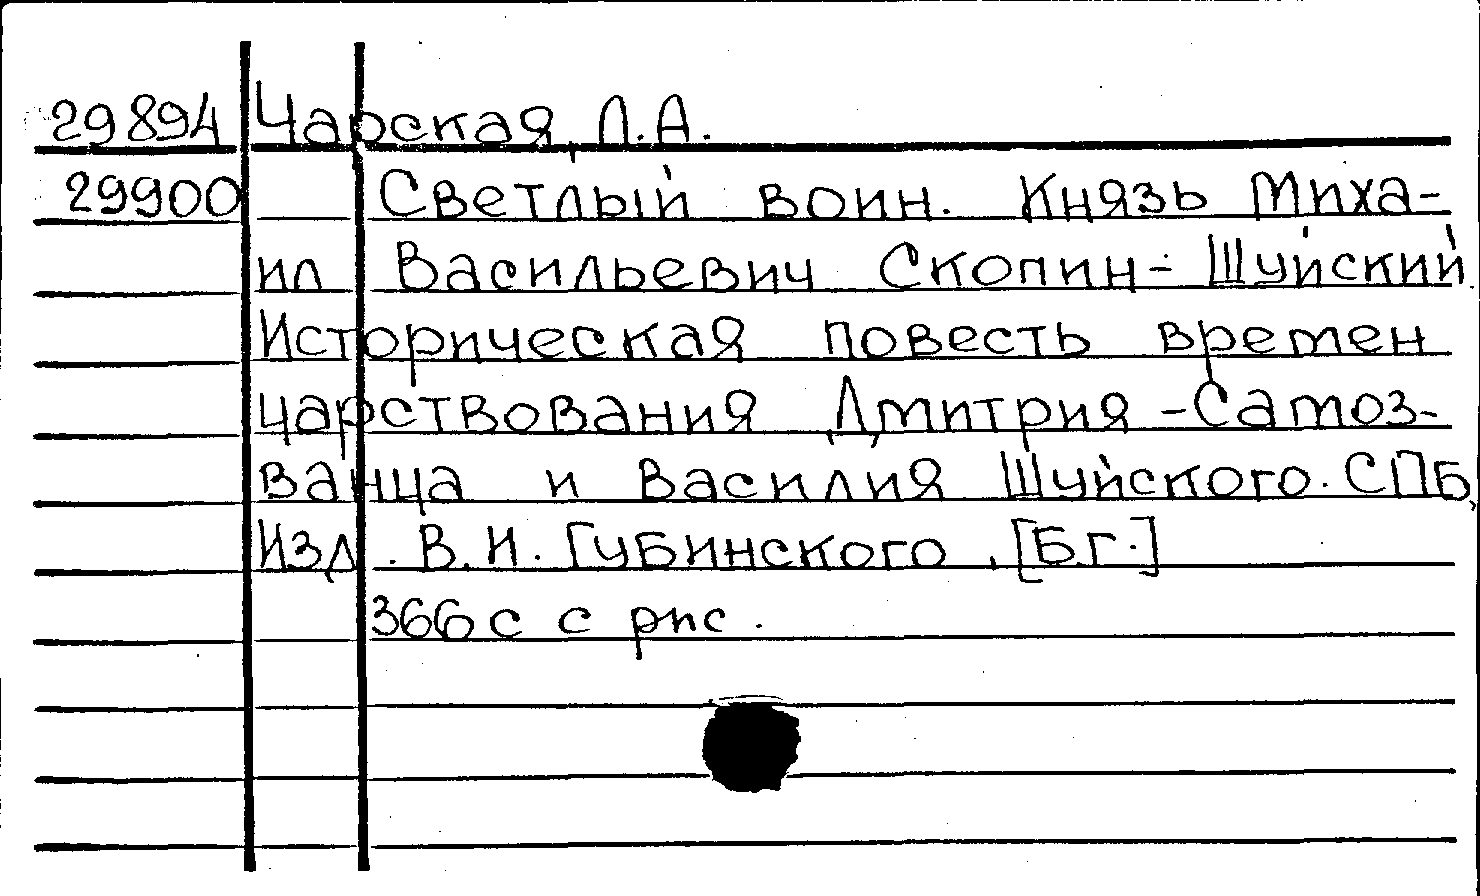 29894 Чарская, Л.А.
29900 Светлый воин. Князь Миха-
ил Васильевич Скопин-Шуйский.
Историческая повесть времен
царствования Дмитрия-Самоз-
ванца и Василия Шуйского. СПб,
Изд. В.И. Губинского, [Б.г.]
366с с рис.